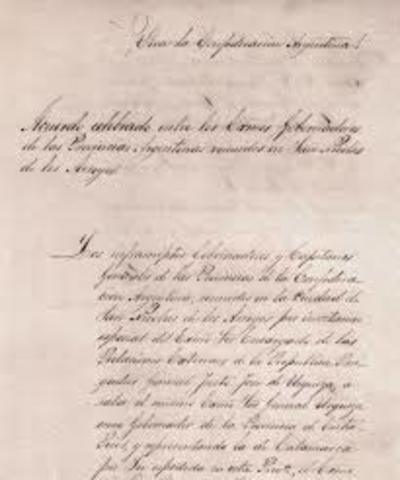 Viva la Confederacion Argentina!
Acuerdo celebrado entre los Exmos Gobernadores
de las Provincias Argentinas reunidos en San Nicolas
de los Arroyos
Los infrascriptos Gobernadores y Capitanes
Generales de las Provincias de la Confedera
cion Argentina, reunidos en la ciudad de
San Nicolas de los Arroyos por invitacion
especial del Exmo Sor Encargado de las
Relaciones Exteriores de la Republica Bri
gadier General Justo José de Urquiza, a
saber el mismo Exmo Sor General Urquiza
como Gobernador de la Provincia de Entre
Rios, y representando la de Catamarca